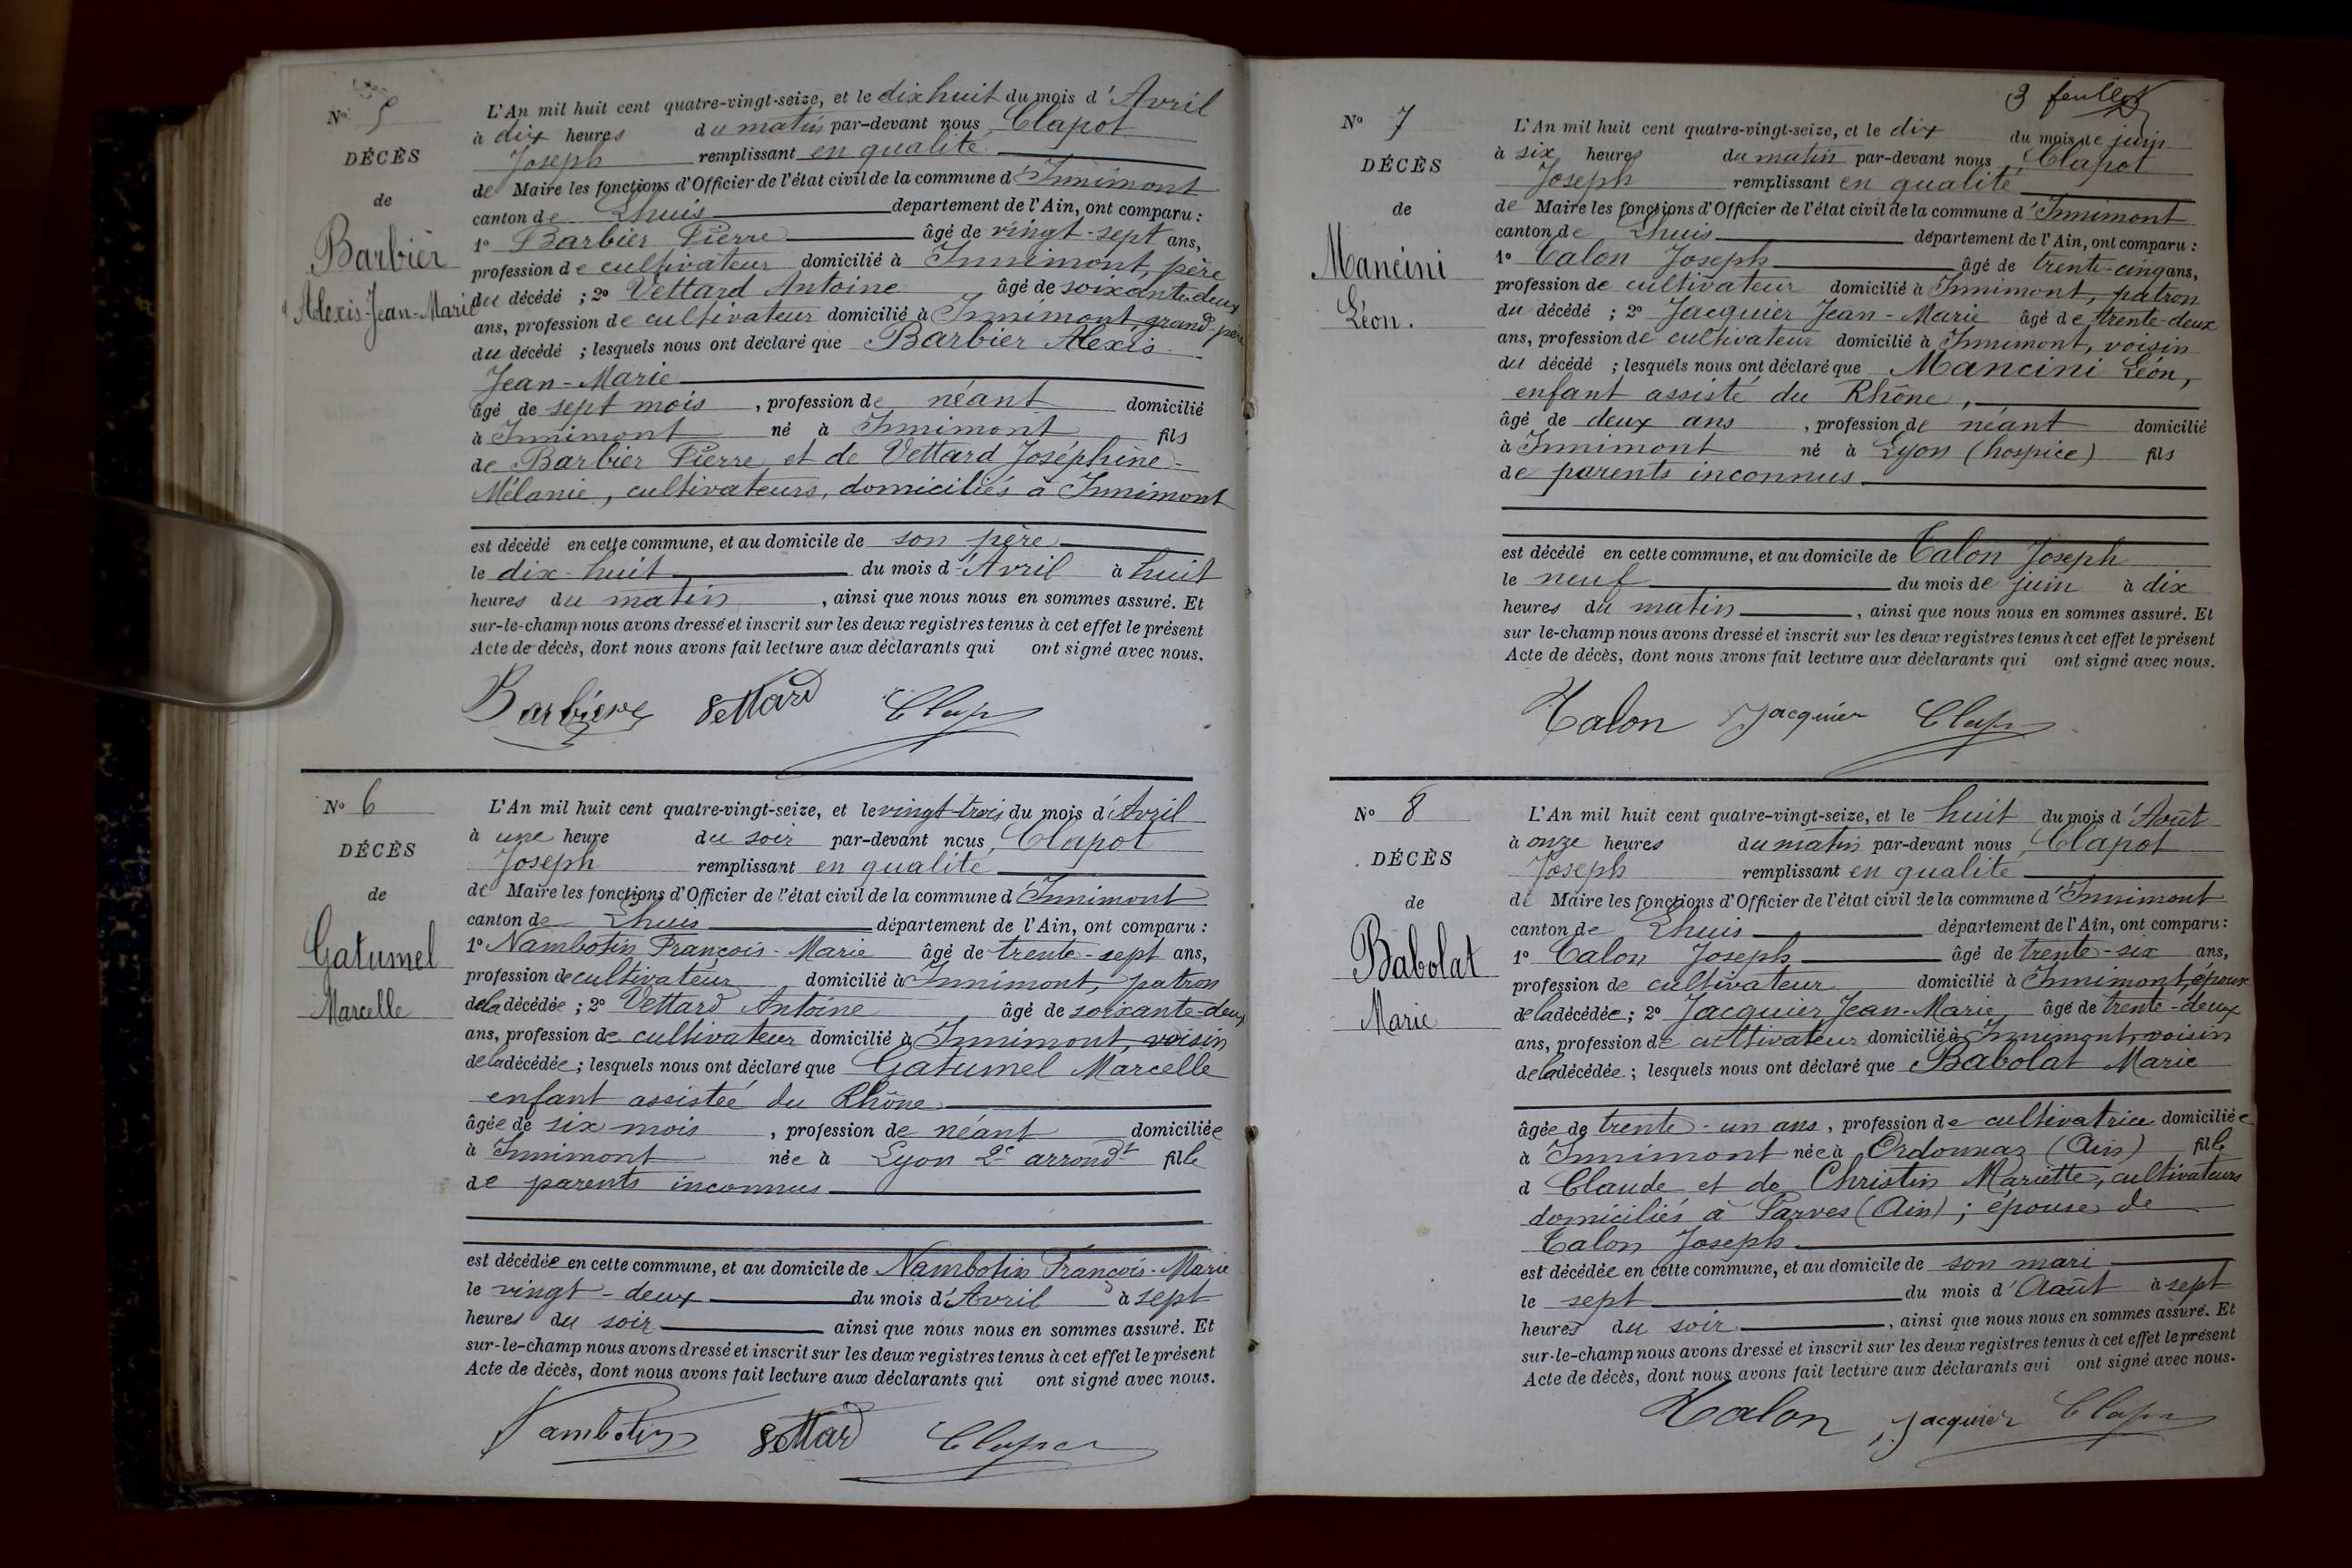 No 5
DÉCÈS
de
Barbier
Alexis-Jean-Marie
L'An mil huit cent quatre-vingt-seize, et le dix huit du mois d'Avril
à dix heures du matin par-devant nous Clapot
Joseph remplissant en qualité
de Maire les fonctions d'Officier de l'état civil de la commune d'Innimont
canton de Lhuis departement de l'Ain, ont comparu :
1o Barbier Pierre âgé de vingt-sept ans,
profession de cultivateur domicilié à Innimont, père
du décédé ; 2o Vettard Antoine âgé de soixante-deux
ans, profession de cultivateur domicilié à Innimont grand-père
du décédé ; lesquels nous ont déclaré que Barbier Alexis
Jean-Marie
âgé de sept mois , profession de néant domicilié
à Innimont né à Innimont fils
de Barbier Pierre et de Vettard Joséphine-
Mélanie, cultivateurs, domiciliés à Innimont
est décédé en cette commune, et au domicile de son père
le dix-huit du mois d'Avril à huit
heures du matin , ainsi que nous nous en sommes assuré. Et
sur-le-champ nous avons dressé et inscrit sur les deux registres tenus à cet effet le présent
Acte de décès, dont nous avons fait lecture aux déclarants qui ont signé avec nous.
Barbier Vettard Clapot
No 6
DÉCÈS
de
Gatumel
Marcelle
L'An mil huit cent quatre-vingt-seize, et le vingt-trois du mois d'Avril
à une heure du soir par-devant nous Clapot
Joseph remplissant en qualité
de Maire les fonctions d'Officier de l'état civil de la commune d'Innimont
canton de Lhuis département de l'Ain, ont comparu :
1o Nambotin François-Marie âgé de trente-sept ans,
profession de cultivateur domicilié à Innimont, patron
de la décédée ; 2o Vettard Antoine âgé de soixante-deux
ans, profession de cultivateur domicilié à Innimont, voisin
de la décédée ; lesquels nous ont déclaré que Gatumel Marcelle
enfant assistée du Rhône
âgée de six mois , profession de néant domiciliée
à Innimont née à Lyon 2e arrondt fille
de parents inconnus
est décédée en cette commune, et au domicile de Nambotin François-Marie
le vingt-deux du mois d'Avril à sept
heures du soir ainsi que nous nous en sommes assuré. Et
sur-le-champ nous avons dressé et inscrit sur les deux registres tenus à cet effet le présent
Acte de décès, dont nous avons fait lecture aux déclarants qui ont signé avec nous.
Nambotin Vettard Clapot
3 feuillet
No 7
DÉCÈS
de
Mancini
Léon.
L'An mil huit cent quatre-vingt-seize, et le dix du mois de juin
à six heures du matin par-devant nous Clapot
Joseph remplissant en qualité
de Maire les fonctions d'Officier de l'état civil de la commune d'Innimont
canton de Lhuis département de l'Ain, ont comparu :
1o Talon Joseph âgé de trente-cinq ans,
profession de cultivateur domicilié à Innimont, patron
du décédé ; 2o Jacquier Jean-Marie âgé de trente-deux
ans, profession de cultivateur domicilié à Innimont, voisin
du décédé ; lesquels nous ont déclaré que Mancini Léon,
enfant assisté du Rhône,
âgé de deux ans , profession de néant domicilié
à Innimont né à Lyon (hospice) fils
de parents inconnus
est décédé en cette commune, et au domicile de Talon Joseph
le neuf du mois de juin à dix
heures du matin , ainsi que nous nous en sommes assuré. Et
sur-le-champ nous avons dressé et inscrit sur les deux registres tenus à cet effet le présent
Acte de décès, dont nous avons fait lecture aux déclarants qui ont signé avec nous.
Talon Jacquier Clapot
No 8
DÉCÈS
de
Babolat
Marie
L'An mil huit cent quatre-vingt-seize, et le huit du mois d'Août
à onze heures du matin par-devant nous Clapot
Joseph remplissant en qualité
de Maire les fonctions d'Officier de l'état civil de la commune d'Innimont
canton de Lhuis département de l'Ain, ont comparu :
1o Talon Joseph âgé de trente-six ans,
profession de cultivateur domicilié à Innimont, époux
de la décédée ; 2o Jacquier Jean-Marie âgé de trente-deux
ans, profession de cultivateur domicilié à Innimont, voisin
de la décédée ; lesquels nous ont déclaré que Babolat Marie
âgée de trente-un ans, profession de cultivatrice domiciliée
à Innimont née à Ordonnaz (Ain) fille
d Claude et de Christin Mariette, cultivateurs
domiciliés à Parves (Ain) ; épouse de
Talon Joseph
est décédée en cette commune, et au domicile de son mari
le sept du mois d'Août à sept
heures du soir , ainsi que nous nous en sommes assuré. Et
sur-le-champ nous avons dressé et inscrit sur les deux registres tenus à cet effet le présent
Acte de décès, dont nous avons fait lecture aux déclarants qui ont signé avec nous.
Talon Jacquier Clapot